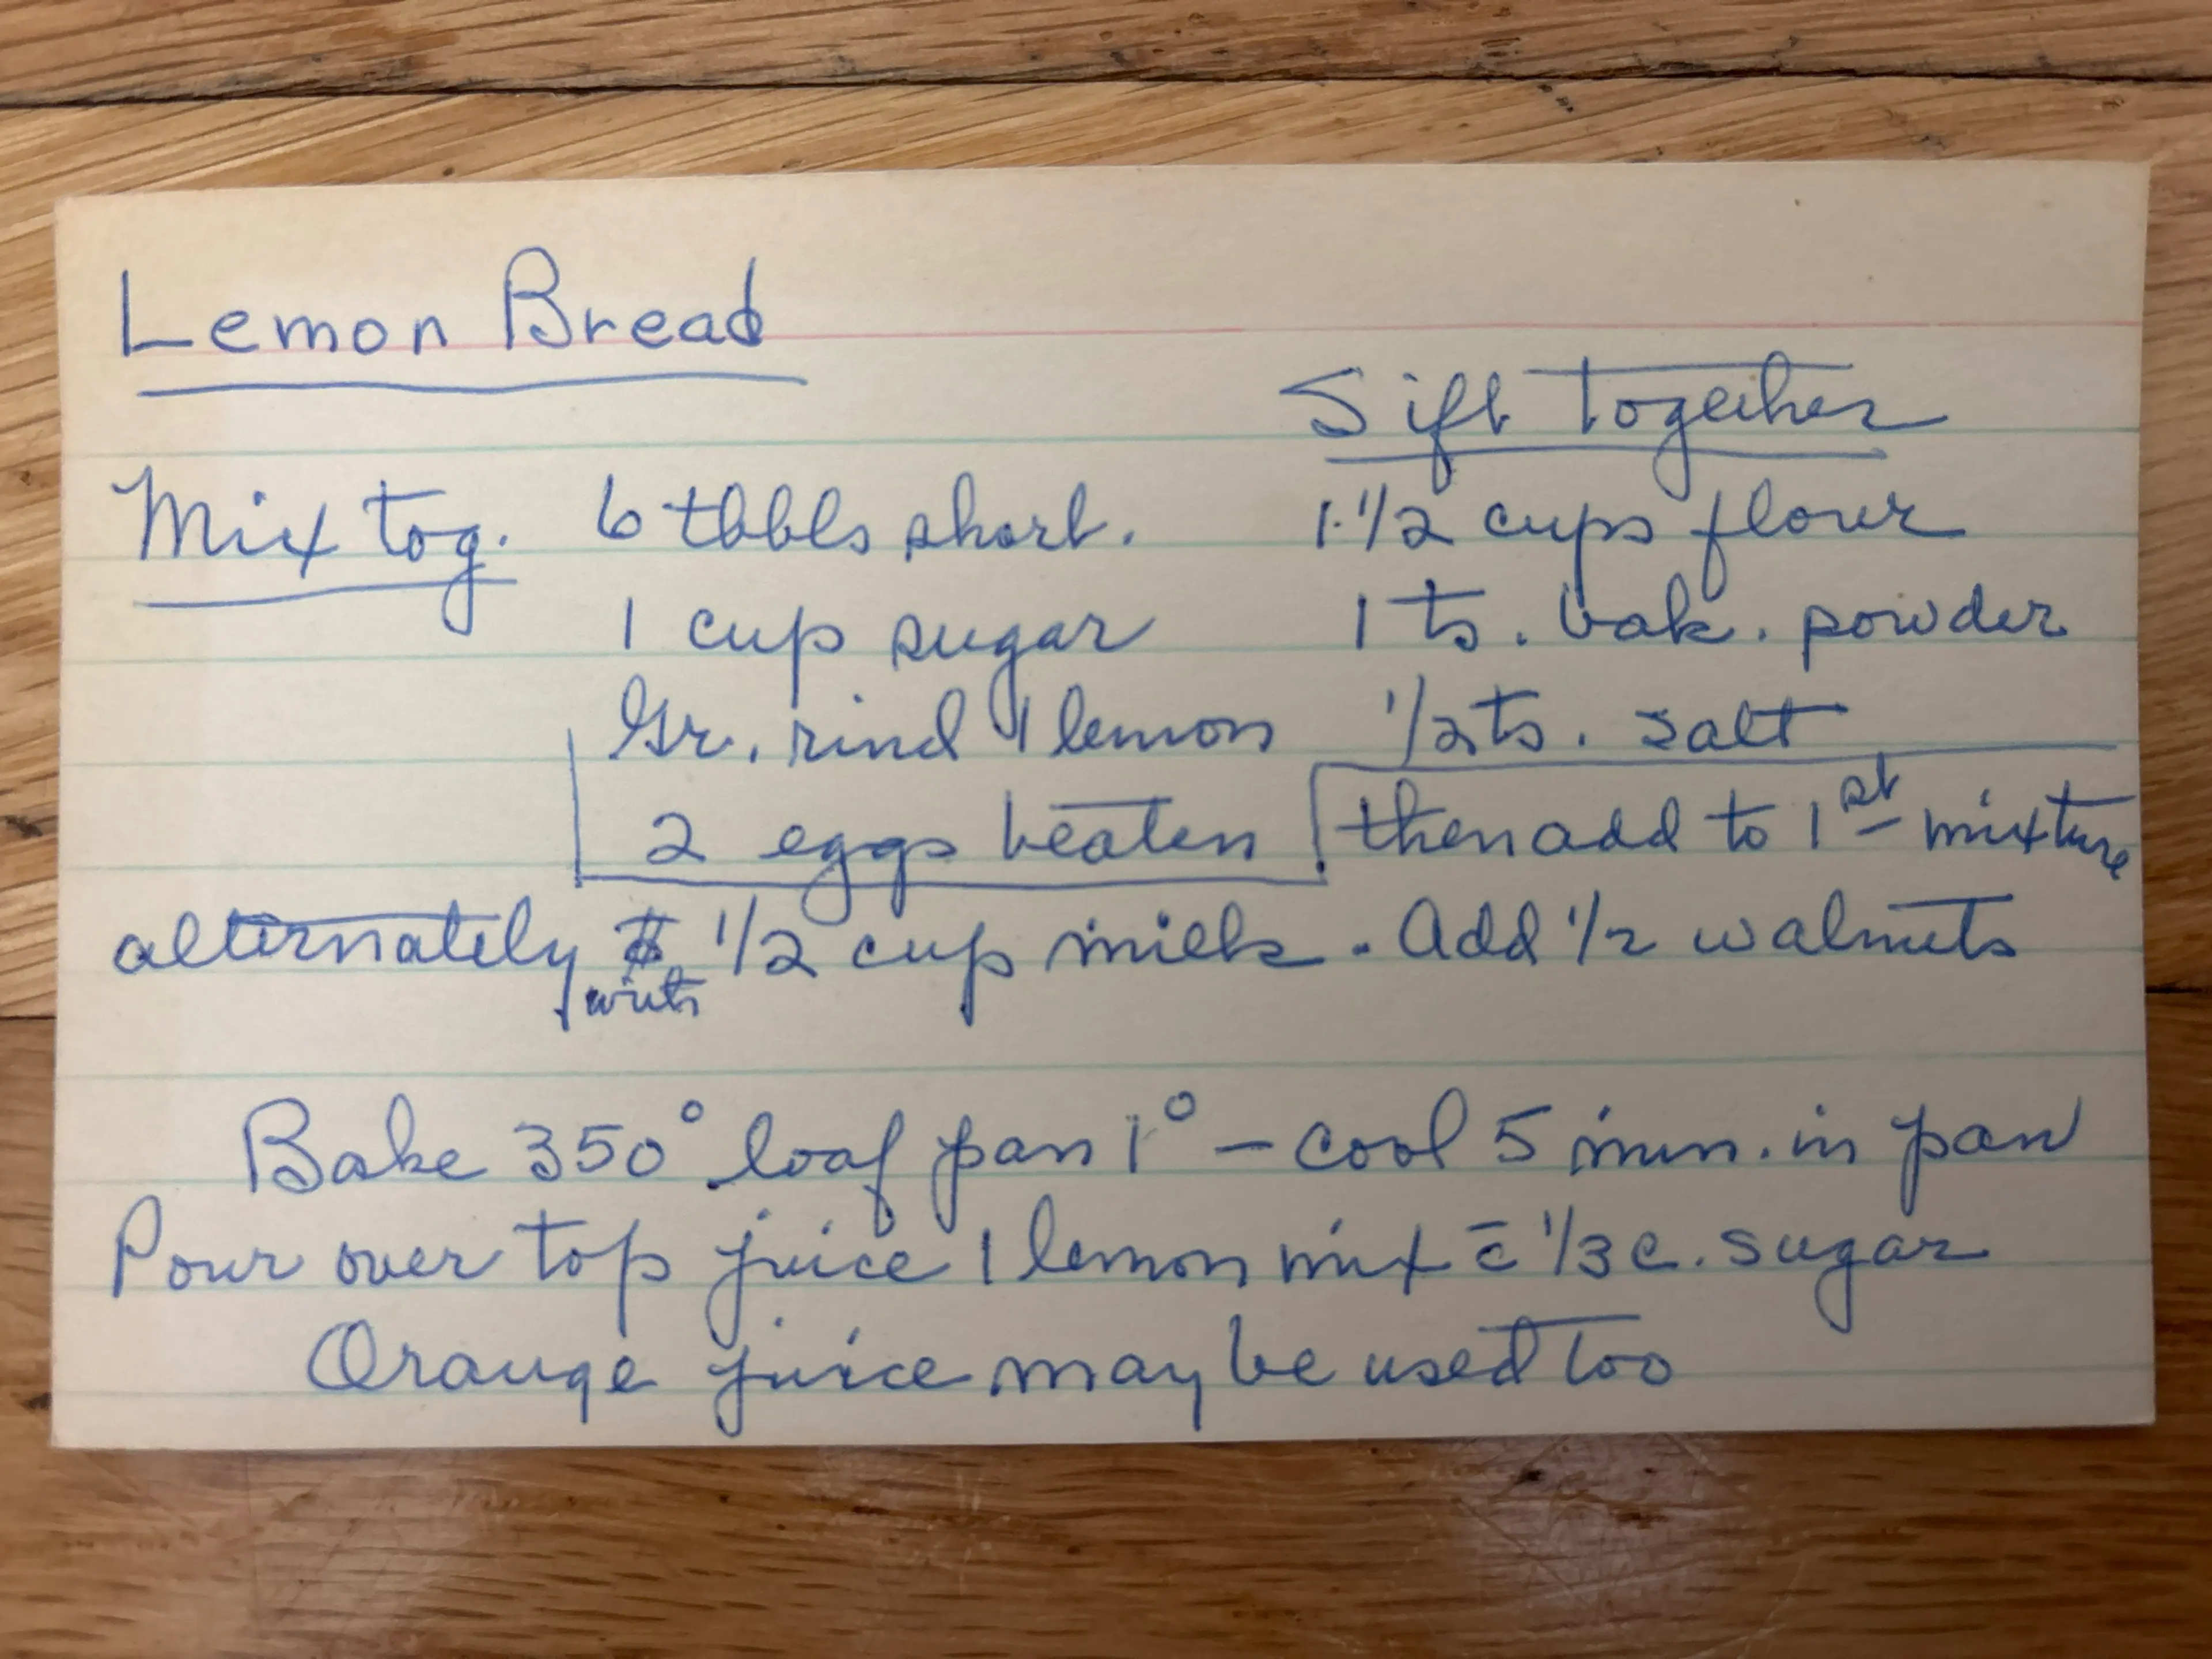 Lemon Bread
Sift together
Mix tog. 6 tbbls short. 1 1/2 cups flour
1 cup sugar 1 ts. bak. powder
Gr. rind 1 lemon 1/2 ts. salt
2 eggs beaten then add to 1st mixture
alternately with 1/2 cup milk. Add 1/2 walnuts
Bake 350° loaf pan 1° - cool 5 min. in pan
Pour over top juice 1 lemon mix c̄ 1/3 c. sugar
Orange juice may be used too